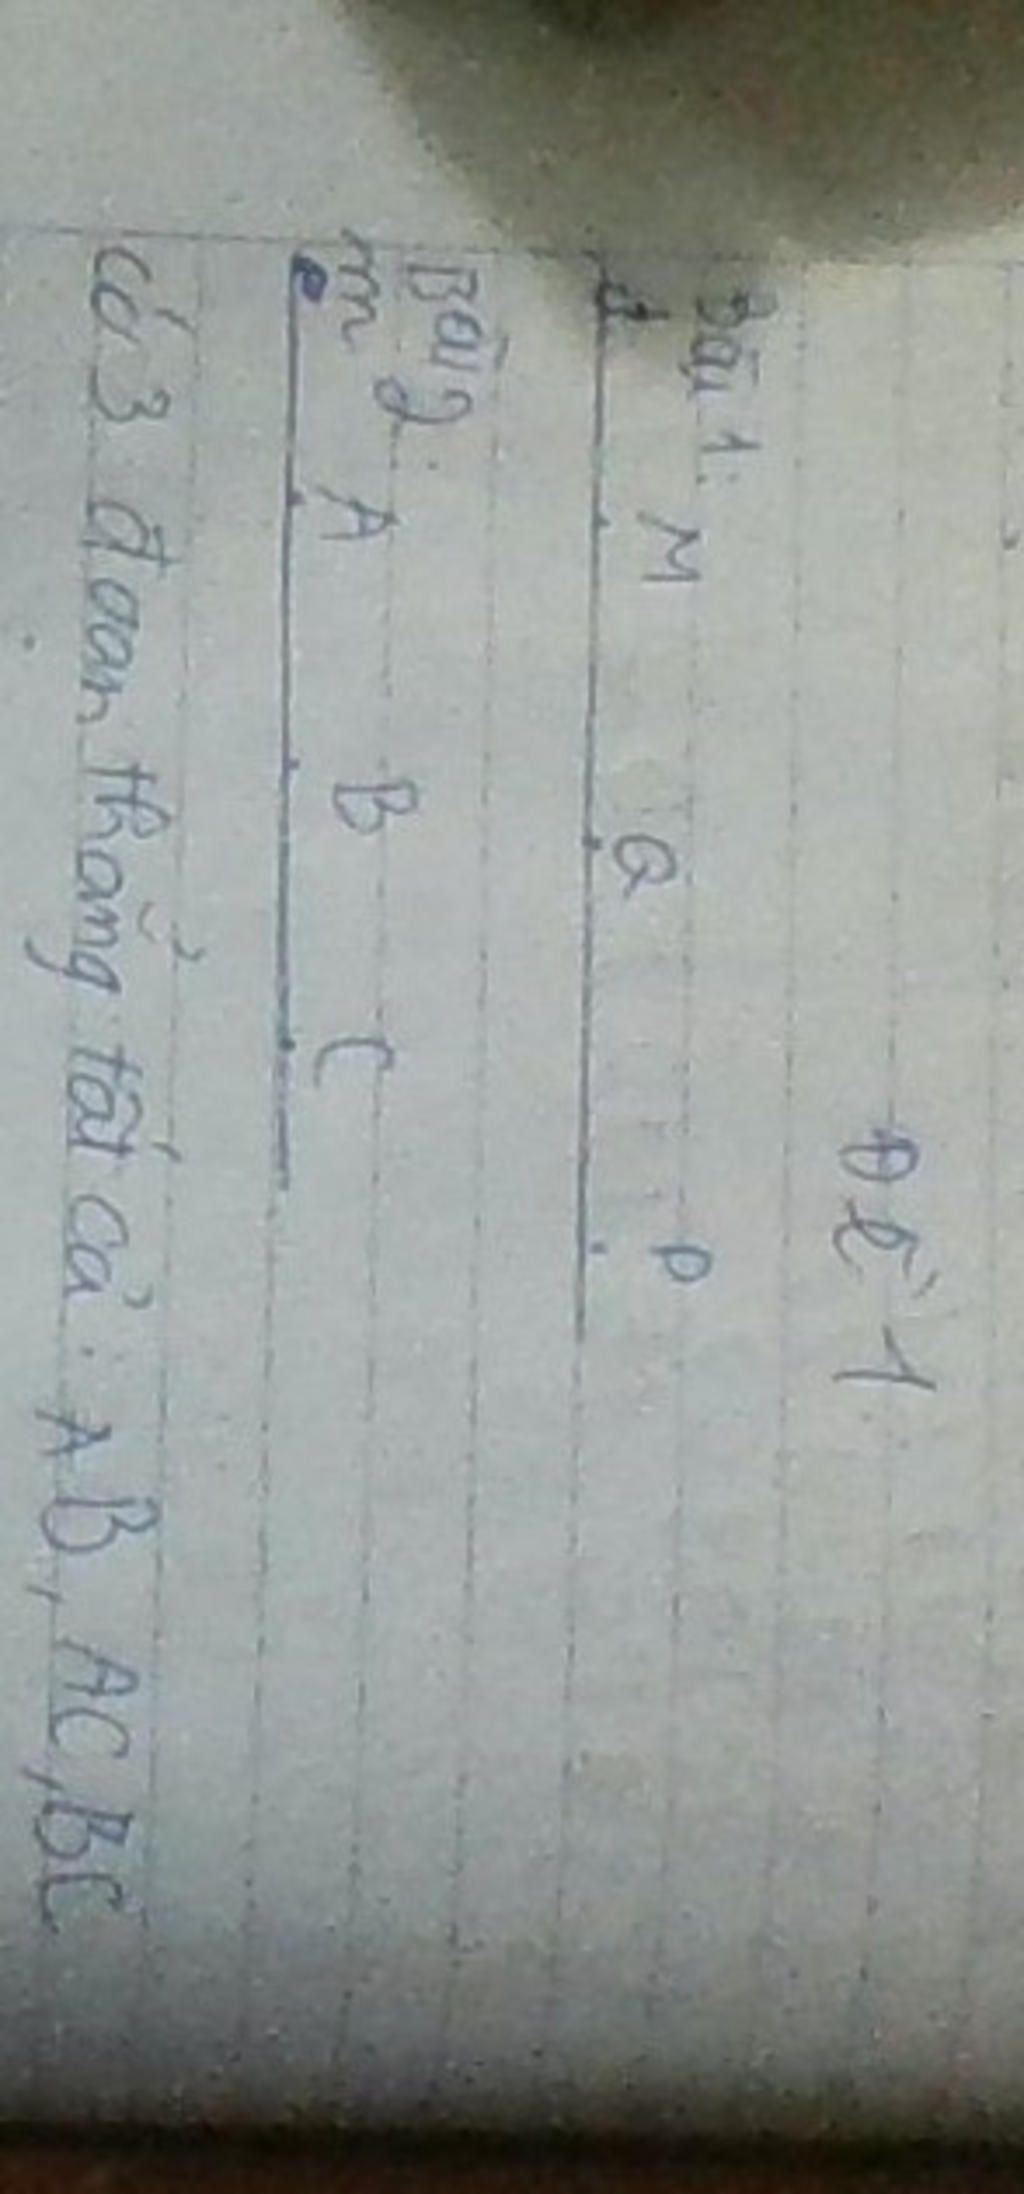 Đề 1
Bài 1:
d M Q P
Bài 2:
m A B C
Có 3 đoạn thẳng tất cả: AB, AC, BC